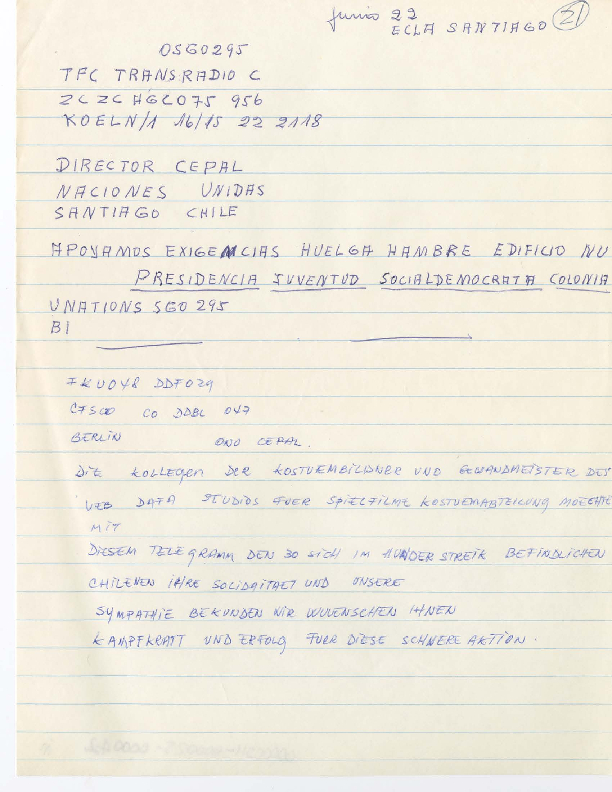 Junio 22 21
ECLA SANTIAGO
OSGO295
TFC TRANSRADIO C
ZCZC HGC075 956
KOELN/1 16/15 22 2118
DIRECTOR CEPAL
NACIONES UNIDAS
SANTIAGO CHILE
APOYAMOS EXIGENCIAS HUELGA HAMBRE EDIFICIO NU
PRESIDENCIA JUVENTUD SOCIALDEMOCRATA COLONIA
UNATIONS SGO 295
BI
FKU048 DDF029
CO DDBL 047
BERLIN ONO CEPAL.
DIE KOLLEGEN DER KOSTUEMBILDNER UND GEWANDMEISTER DES
VEB DAFA STUDIOS FUER SPIELFILME KOSTUEMABTEILUNG MOECHTE
MIT
DIESEM TELEGRAMM DEN 30 SICH IM HUNDER STREIK BEFINDLICHEN
CHILENEN IHRE SOLIDAITAET UND UNSERE
SYMPATHIE BEKUNDEN WIR WUUENSCHEN IHNEN
KAMPFKRAFT UND ERFOLG FUER DIESE SCHWERE AKTION.